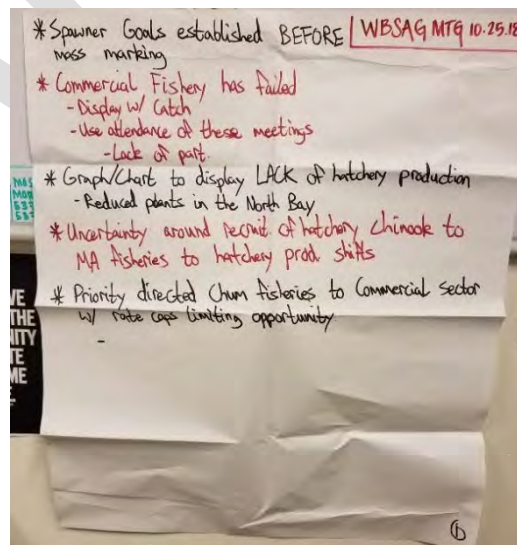 * Spawner Goals established BEFORE
mass marking
WBSAG MTG 10.25.18
* Commercial Fishery has failed
- Display w/ Catch
- Use attendance of these meetings
- Lack of part.
* Graph/Chart to display LACK of hatchery production
- Reduced plants in the North Bay
* Uncertainty around recruit of hatchery chinook to
MA fisheries to hatchery prod shifts
* Priority directed Chum fisheries to Commercial sector
w/ rate caps limiting opportunity
-
1
VE
THE
NITY
TE
ME